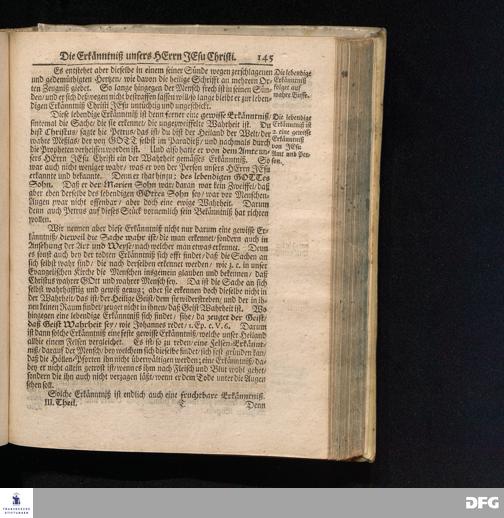 Die Erkänntniß unsers HErrn JEsu Christi. 145
Es entstehet aber dieselbe in einem seiner Sünde wegen zerschlagenen
und gedemüthigten Hertzen/ wie davon die heilige Schrifft an mehrern Or-
ten Zeugniß giebet. So lange hingegen der Mensch frech ist in seinen Sün-
den/ und er sich deßwegen nicht bestraffen lassen will/ so lange bleibt er zur leben-
digen Erkänntniß Christi JEsu untüchtig und ungeschickt.
Die lebendige
Erkänntniß
folget auf
wahre Busse.
Diese lebendige Erkänntniß ist denn ferner eine gewisse Erkänntniß/
sintemal die Sache/ die sie erkennt/ die ungezweiffelte Wahrheit ist. Du
bist Christus/ sagte hie Petrus/ das ist/ du bist der Heiland der Welt/ der
wahre Meßias/ der von GOTT selbst im Paradieß/ und nachmals durch
die Propheten verheissen worden ist. Und also hatte er von dem Amte un-
sers HErrn JEsu Christi ein der Wahrheit gemässes Erkänntniß. So
war auch nicht weniger wahr/ was er von der Person unsers HErrn JEsu
erkannte und bekannte. Denn er that hinzu: des lebendigen GOTTes
Sohn. Daß er der Marien Sohn war/ daran war kein Zweiffel/ daß
aber eben derselbe des lebendigen GOttes Sohn sey/ war vor Menschen-
Augen zwar nicht offenbar/ aber doch eine ewige Wahrheit. Darum
denn auch Petrus auf dieses Stück vornemlich sein Bekänntniß hat richten
wollen.
Die lebendige
Erkänntniß ist
2. eine gewisse
Erkänntniß
von JEsu
Amt und Per-
son.
Wir nennen aber diese Erkänntniß nicht nur darum eine gewisse Er-
känntniß/ dieweil die Sache wahr ist/ die man erkennet/ sondern auch in
Ansehung der Art und Weyse/ nach welcher man etwas erkennet. Denn
es sonst auch bey der todten Erkänntniß sich offt findet/ daß die Sachen an
sich selbst wahr sind/ die nach derselben erkennet werden/ wie z. e. in unser
Evangelischen Kirche die Menschen insgemein glauben und bekennen/ daß
Christus wahrer GOtt und wahrer Mensch sey. Da ist die Sache an sich
selbst wahrhafftig und gewiß genug; aber sie erkennen doch dieselbe nicht in
der Wahrheit/ das ist/ der Heilige Geist/ dem sie widerstreben/ und der in ih-
nen keinen Raum findet/ zeuget nicht in ihnen/ daß Geist Wahrheit ist. Wo
hingegen eine lebendige Erkänntniß sich findet/ sihe/ da zeuget der Geist/
daß Geist Wahrheit sey/ wie Johannes redet/ 1. Ep. c. V. 6. Darum
ist dann solche Erkänntniß eine feste gewisse Erkänntniß/ welche unser Heiland
allhie einem Felsen vergleichet. Es ist/ so zu reden/ eine Felsen-Erkännt-
niß/ darauf der Mensch/ bey welchem sich dieselbe findet/ sich fest gründen kan/
daß die Höllen-Pforten ihn nicht überwältigen werden; eine Erkänntniß/ da-
bey er nicht allein getrost ist/ wenn es ihm nach Fleisch und Blut wohl gehet/
sondern die ihn auch nicht verzagen läßt/ wenn er dem Tode unter die Augen
sehen soll.
Solche Erkänntniß ist endlich auch eine fruchtbare Erkänntniß.
III. Theil. T Denn
FRANCKESCHE
STIFTUNGEN
DFG